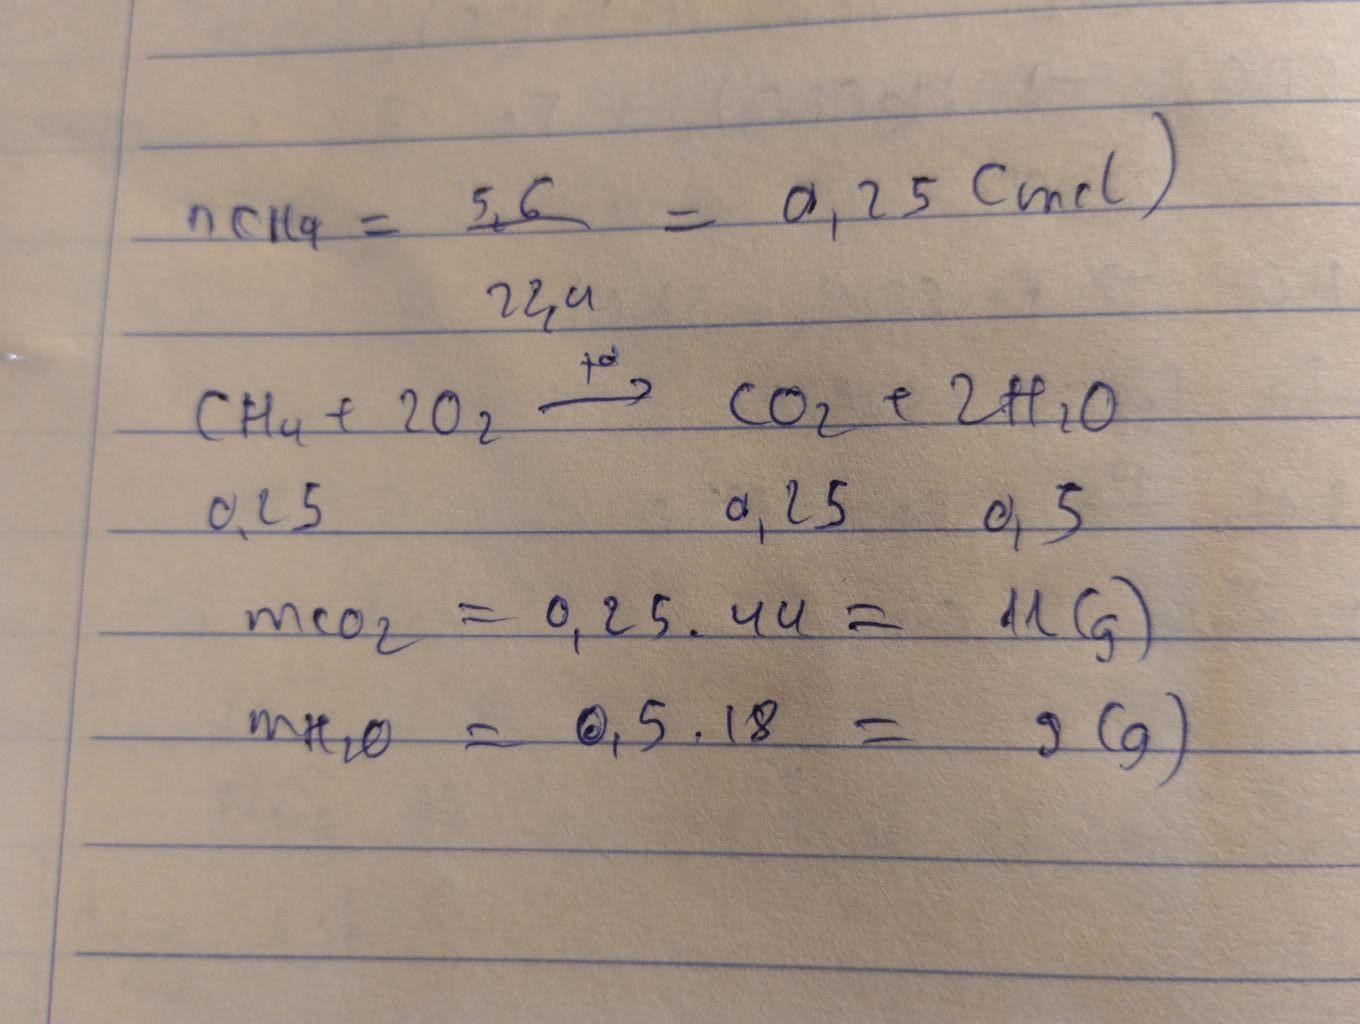 nCH4 = 5,6 / 22,4 = 0,25 (mol)
CH4 + 2O2 →(t°) CO2 + 2H2O
0,25 0,25 0,5
mCO2 = 0,25.44 = 11 (g)
mH2O = 0,5.18 = 9 (g)